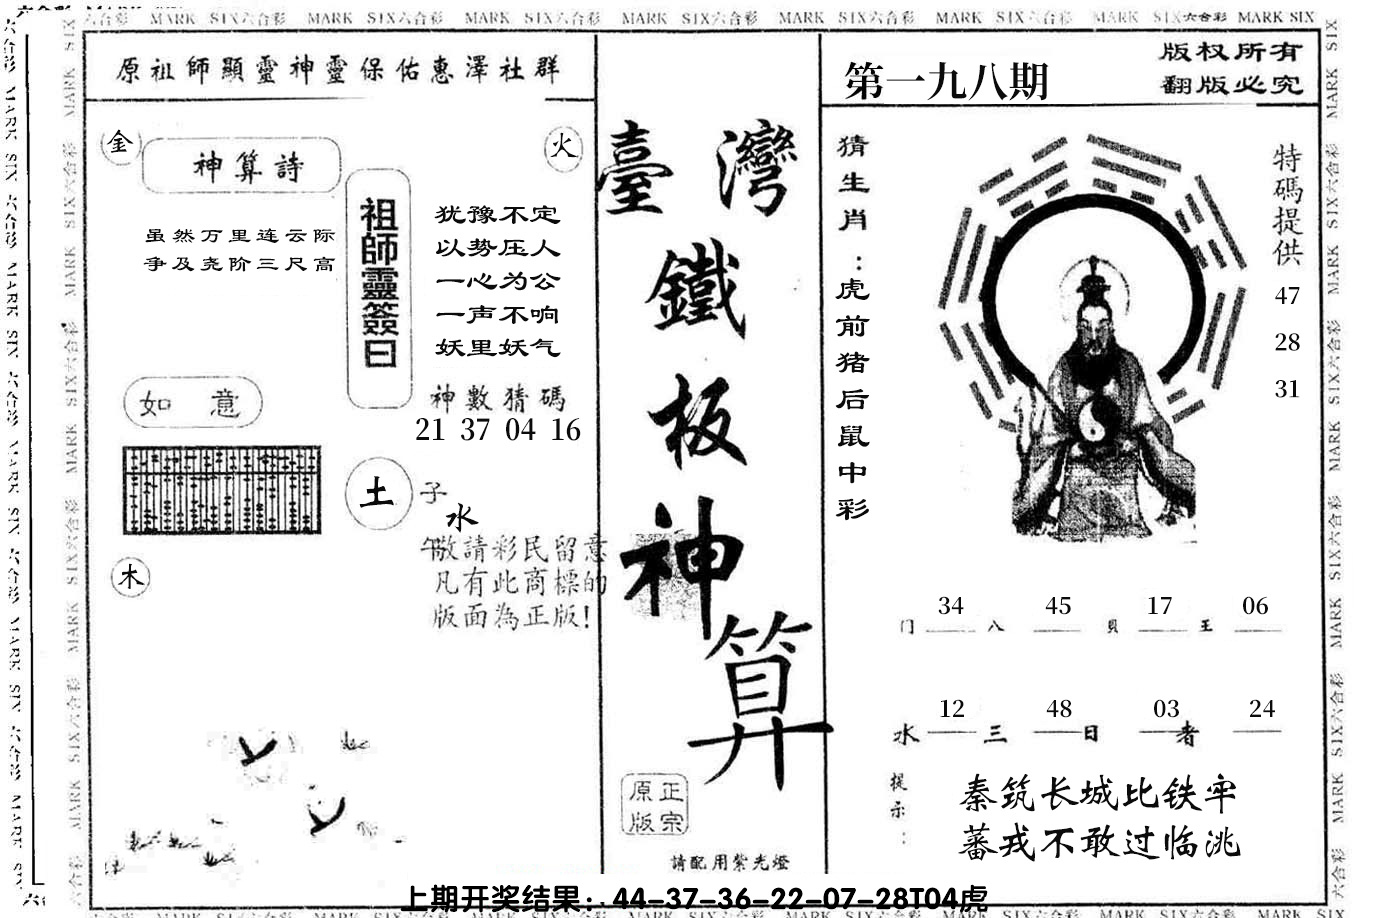 六合彩 MARK SIX六合彩 MARK SIX六合彩 MARK SIX六合彩 MARK SIX六合彩 MARK SIX六合彩 MARK SIX六合彩 MARK SIX六合彩 MARK SIX六合彩 MARK SIX
原祖師顯靈神靈保佑惠澤社群
金
火
神算詩
虽然万里连云际
争及尧阶三尺高
祖師靈簽曰
犹豫不定
以势压人
一心为公
一声不响
妖里妖气
神數猜碼
21 37 04 16
如意
土
子
水
午
木
敬請彩民留意
凡有此商標的
版面為正版!
臺灣
鐵
板
神
算
正宗
原版
請配用紫光燈
第一九八期
版权所有
翻版必究
猜生肖:虎前猪后鼠中彩
特碼提供
47
28
31
34 45 17 06
门 八 貝 王
12 48 03 24
水 三 日 者
提示:
秦筑长城比铁牢
蕃戎不敢过临洮
上期开奖结果: 44-37-36-22-07-28T04虎